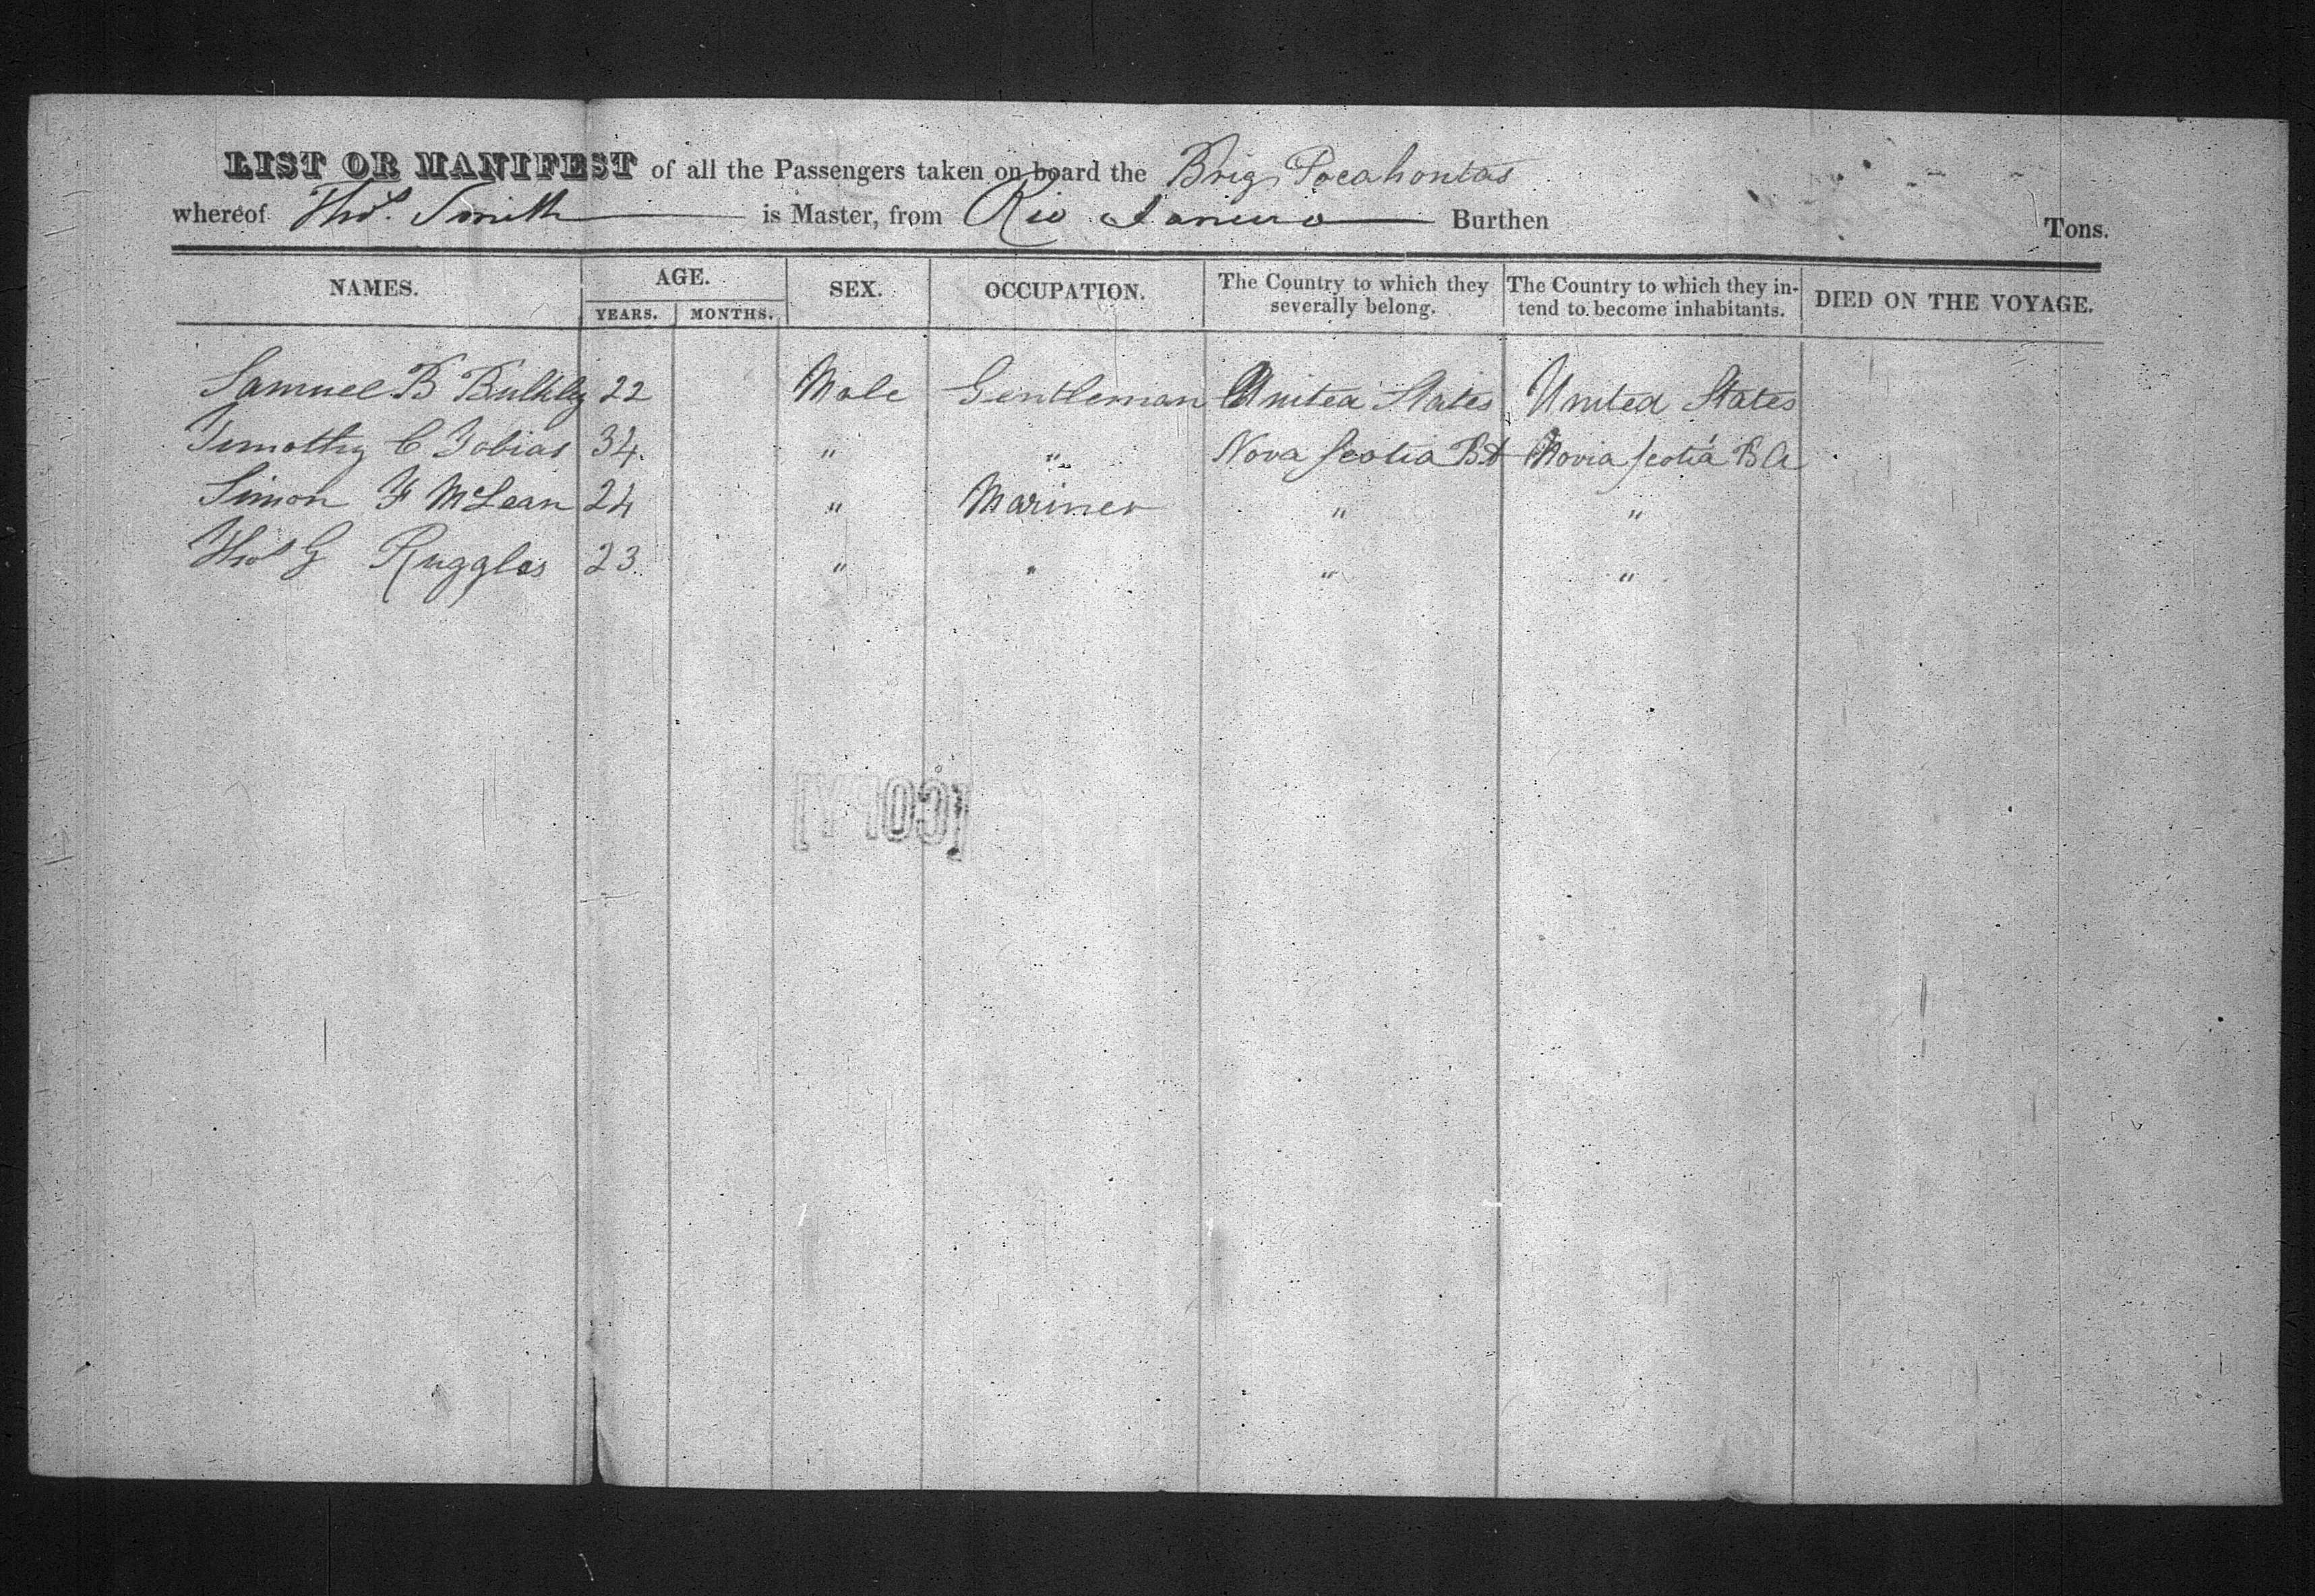 LIST OR MANIFEST of all the Passengers taken on board the Brig Pocahontas
whereof Thos. Smith is Master, from Rio Janeiro Burthen Tons.
NAMES. AGE. SEX. OCCUPATION. The Country to which they severally belong. The Country to which they intend to become inhabitants. DIED ON THE VOYAGE.
YEARS. MONTHS.
Samuel B Bulkley 22 Male Gentleman United States United States
Timothy C Tobias 34 " " Nova Scotia BA Novia Scotia B A
Simon F McLean 24 " Mariner " "
Thos G Ruggles 23 " " " "
[COPY]